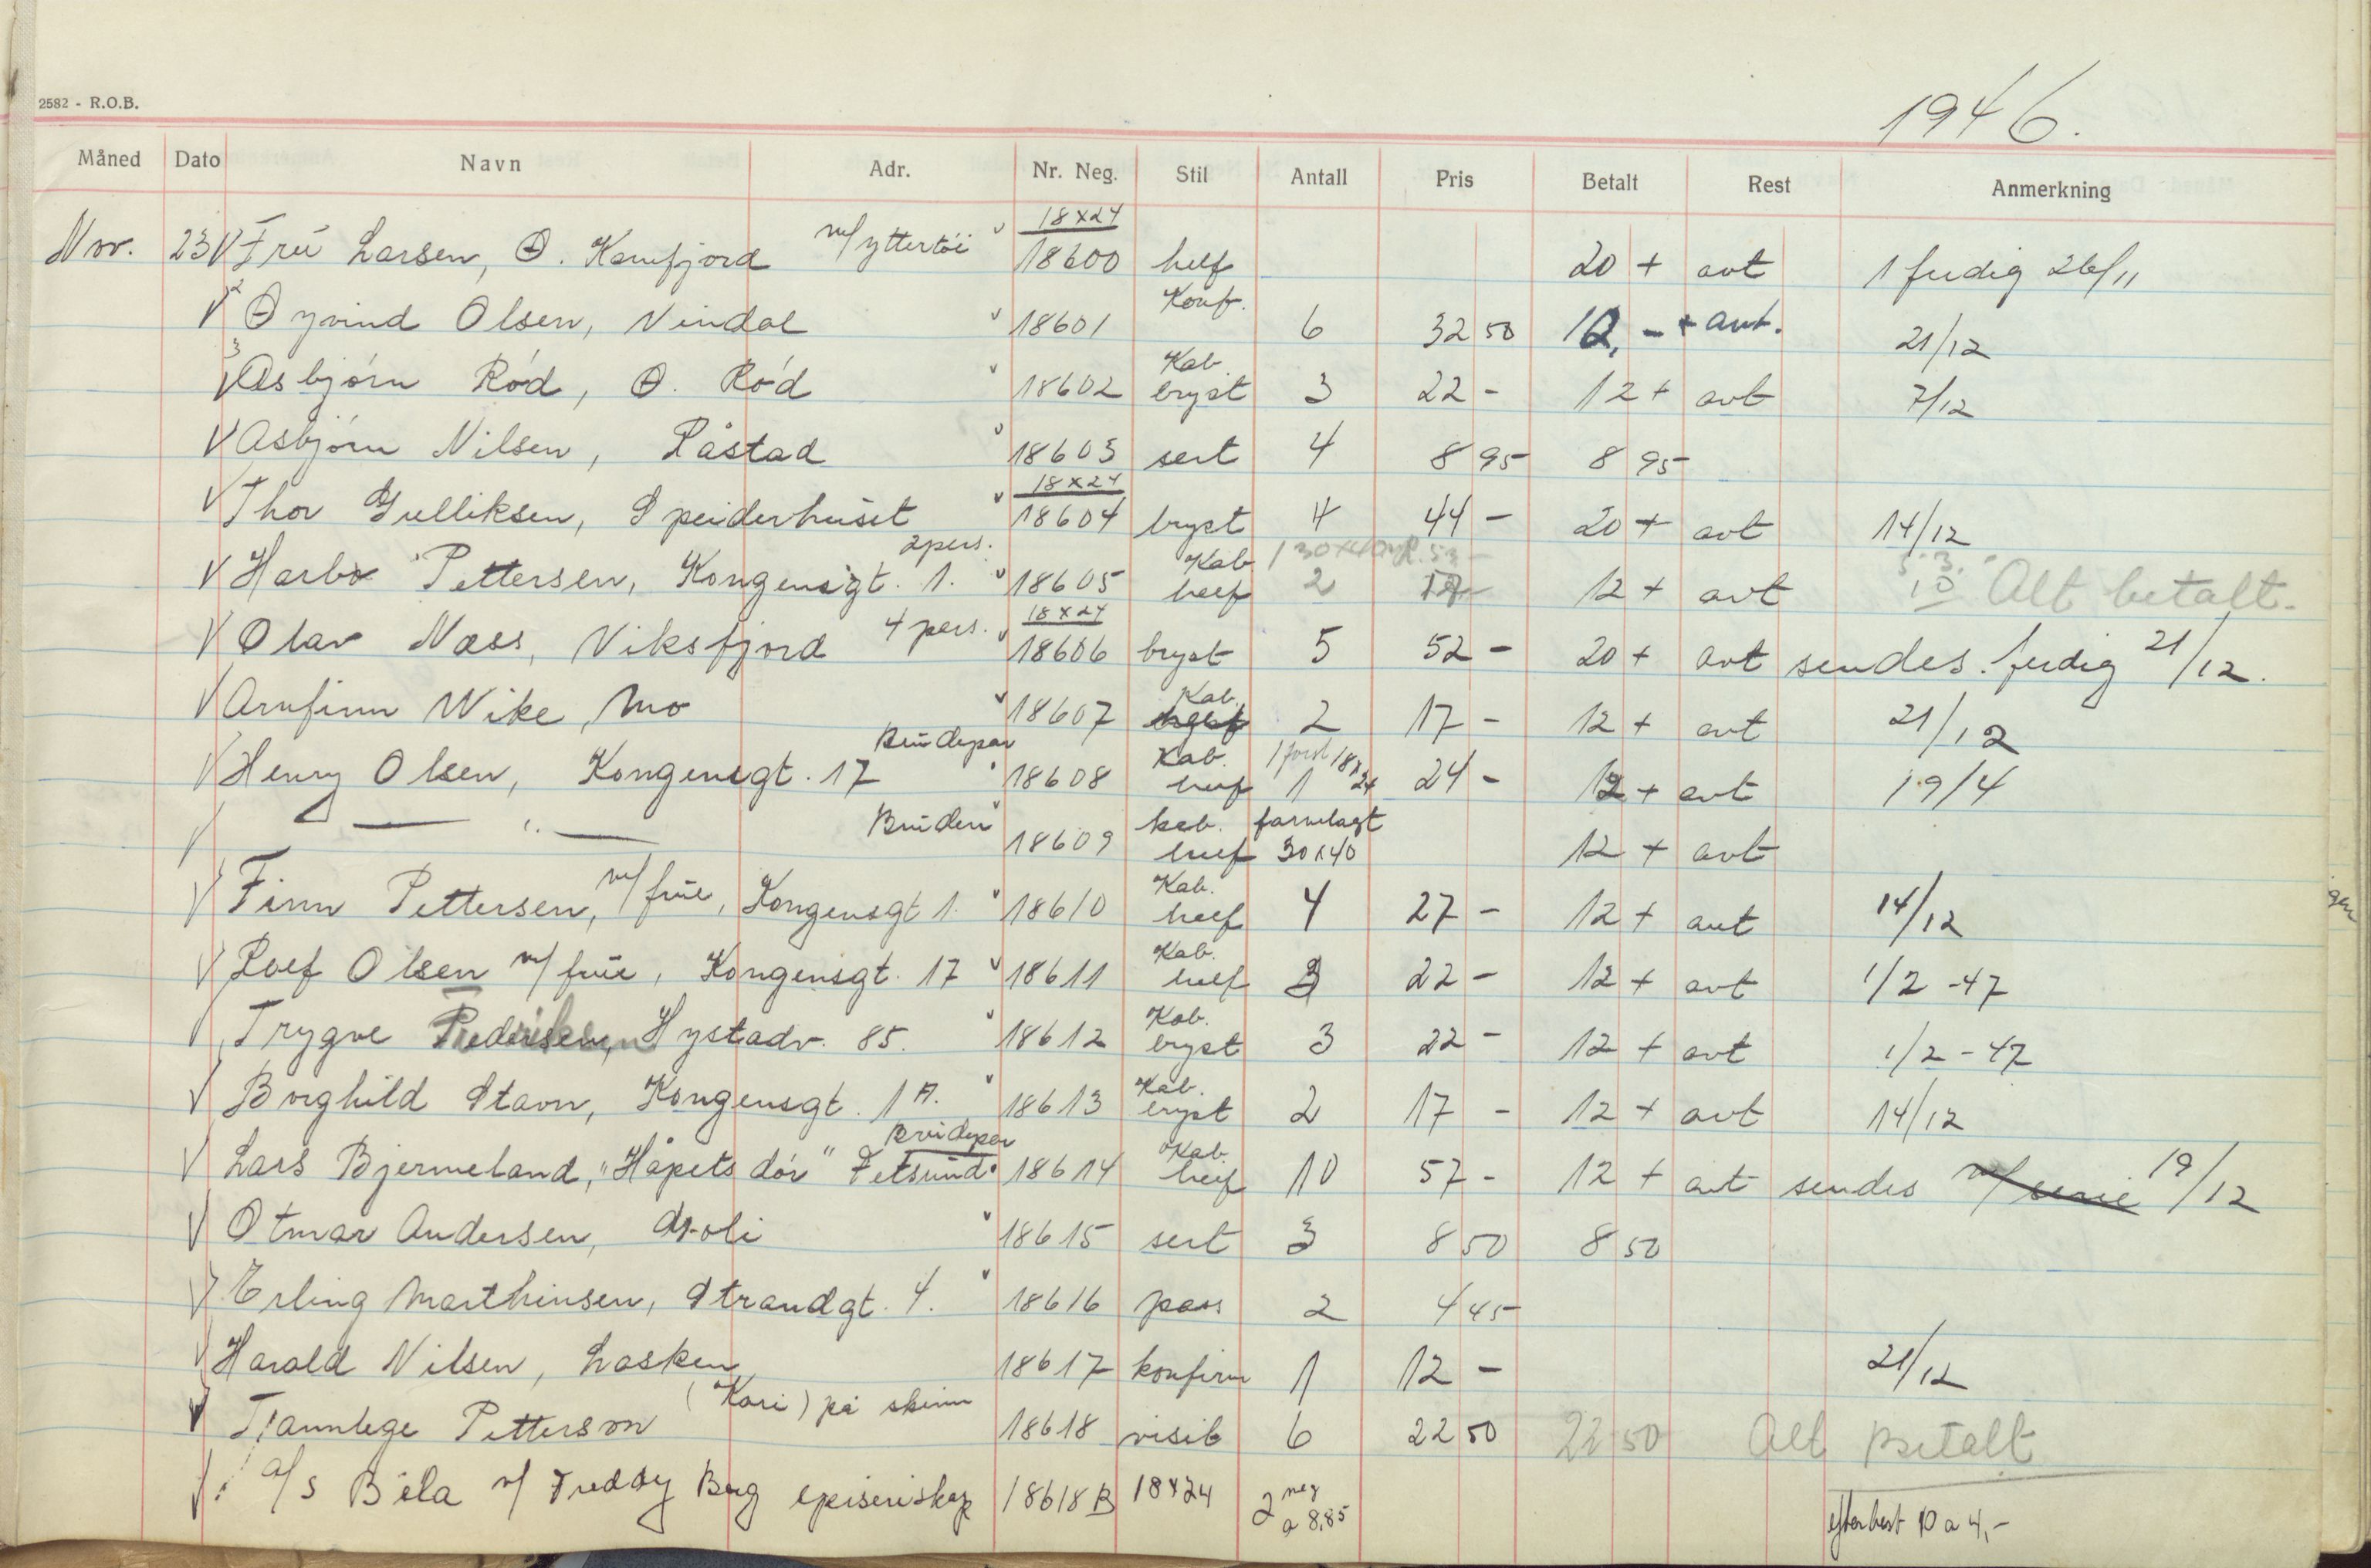 2582 - R.O.B.
1946.
Måned Dato Navn Adr. Nr. Neg. Stil Antall Pris Betalt Rest Anmerkning
18x24
Nov. 23 V Fru Larsen, Ø. Kamfjord m/yttertøi 18600 helf 20 + avt 1 ferdig 26/11
Konf.
V 2 Øyvind Olsen, Vindal 18601 6 32 50 12,- + avt. 21/12
Kab.
3 V Asbjørn Rød, Ø. Rød 18602 bryst 3 22 - 12 + avt 7/12
V Asbjørn Nilsen, Råstad 18603 sert 4 8 95 8 95
18x24
V Thor Gulliksen, Speiderhuset 18604 bryst 4 44 - 20 + avt 14/12
2 pers. Kab 1 30x40
V Pettersen, Kongensgt. 1. 18605 helf 2 17 - 12 + avt Alt betalt.
18x24
V Olav Næss, Viksfjord 4 pers. 18606 bryst 5 52 - 20 + avt sendes. ferdig 21/12.
Kab.
V Arnfinn Wike, Mo 18607 2 17 - 12 + avt 21/12
Brudepar Kab. 1 forst 18x24
V Henry Olsen, Kongensgt. 17 18608 helf 1 24 - 12 + avt 19/4
Bruden kab. farvelagt
V — " — 18609 helf 30x40 12 + avt
Kab.
V Finn Pettersen, m/frue, Kongensgt 1. 18610 helf 4 27 - 12 + avt 14/12
Kab.
V Rolf Olsen m/frue, Kongensgt. 17 18611 helf 3 22 - 12 + avt 1/2 -47
Kab.
V Trygve Hystadv. 85. 18612 bryst 3 22 - 12 + avt 1/2 - 47
Kab.
V Borghild Stavn, Kongensgt. 1 A. 18613 bryst 2 17 - 12 + avt 14/12
Brudepar Kab.
V Lars Bjermeland, "Håpets dør" Fetsund 18614 helf 10 57 - 12 + avt sendes 19/12
V Otmar Andersen, 18615 sert 3 8 50 8 50
V Erling Marthinsen, Strandgt. 4. 18616 pass 2 4 45
V Harald Nilsen, Lasken 18617 konfirm 1 12 - 21/12
(Kari) på skinn
V Tannlege Petterson 18618 visit 6 22 50 22 50 Alt betalt
V A/S Bila v/ Freddy Berg 18618 B 18x24 2 neg a 8,85 efterbest 10 a 4,-